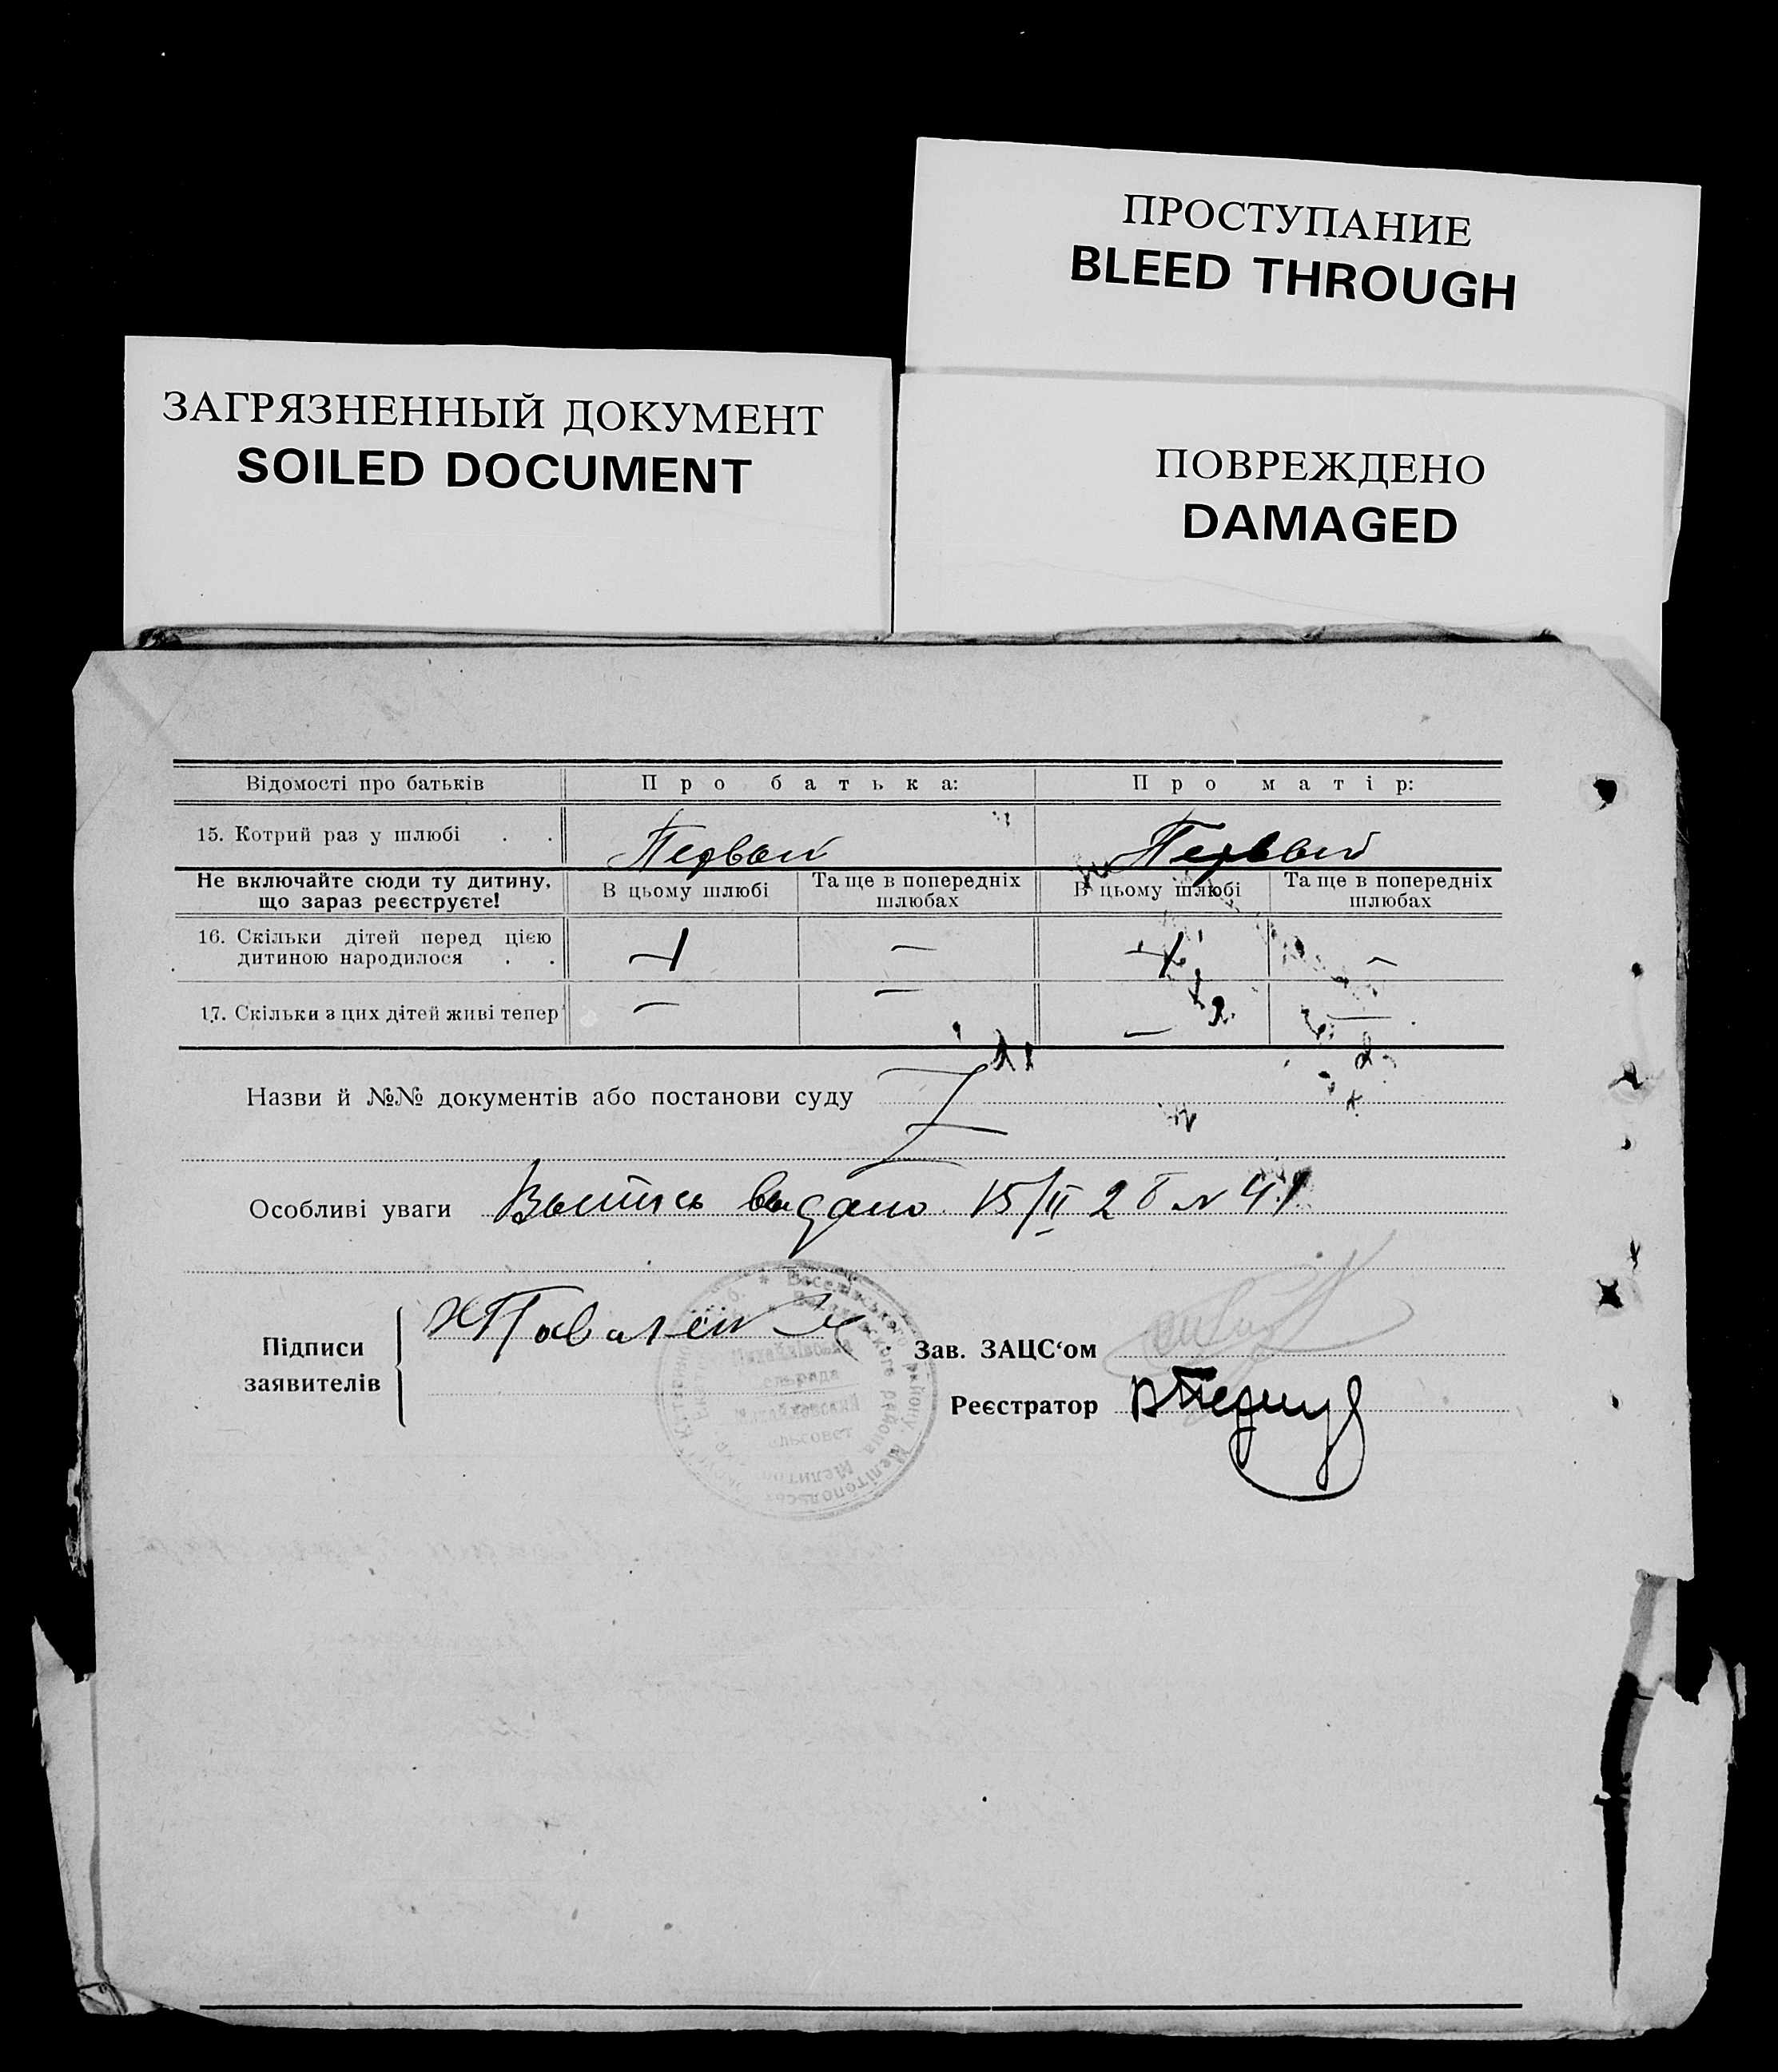 ПРОСТУПАНИЕ
BLEED THROUGH
ЗАГРЯЗНЕННЫЙ ДОКУМЕНТ
SOILED DOCUMENT
ПОВРЕЖДЕНО
DAMAGED
Відомості про батьків Про батька: Про матір:
15. Котрий раз у шлюбі . . Первый Первый
Не включайте сюди ту дитину, що зараз реєструєте! В цьому шлюбі Та ще в попередніх шлюбах В цьому шлюбі Та ще в попередніх шлюбах
16. Скільки дітей перед цією
дитиною народилося . . 1 — 1 —
17. Скільки з цих дітей живі тепер — — — —
Назви й №№ документів або постанови суду
Особливі уваги Выпись выдано 15/II 28 N 41
Підписи
заявителів
Зав. ЗАЦС‘ом
Реєстратор
Михайлівська
сільрада
Михайловский
сельсовет